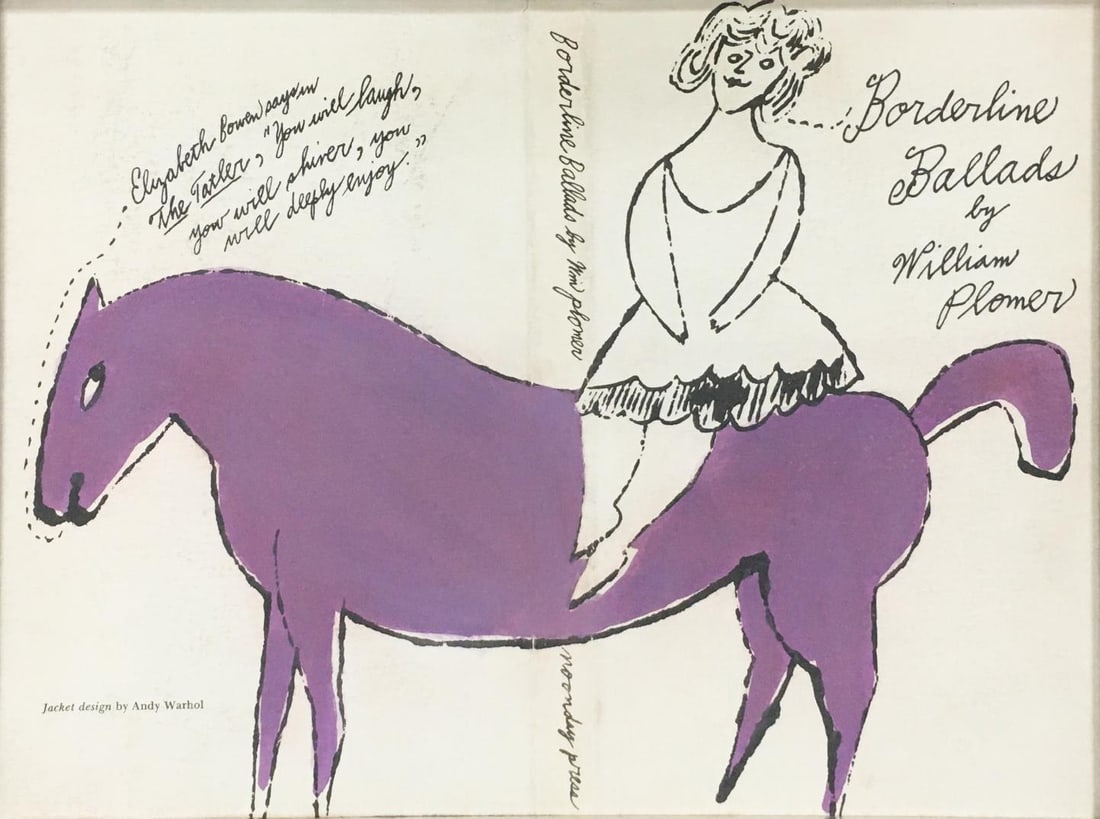 Elizabeth Bowen says in
The Tatler, "You will laugh,
you will shiver, you
will deeply enjoy."
Jacket design by Andy Warhol
Borderline Ballads by Wm plomer
noonday press
Borderline
Ballads
by
William
Plomer